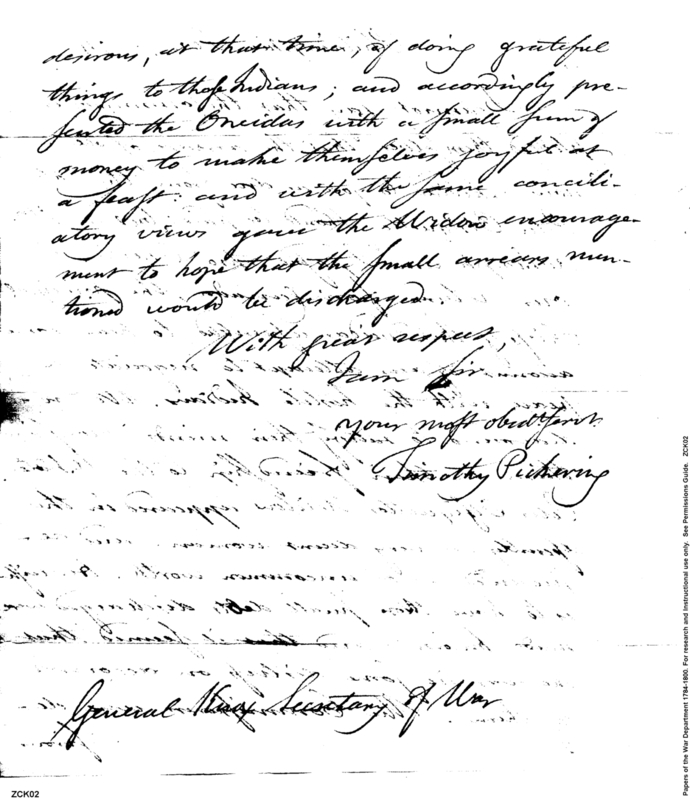 desirous, at that time, of doing grateful
things to those Indians; and accordingly pre-
sented the Oneidas with a small sum of
money to make themselves joyful at
a feast and with the same concili-
atory views gave the Widow encourage-
ment to hope that the small arrears men-
tioned would be discharged.
With great respect,
I am Sir
your most obedt servt
Timothy Pickering
General Knox Secretary of War
ZCK02
Papers of the War Department 1784-1800. For research and Instructional use only. See Permissions Guide. ZCK02